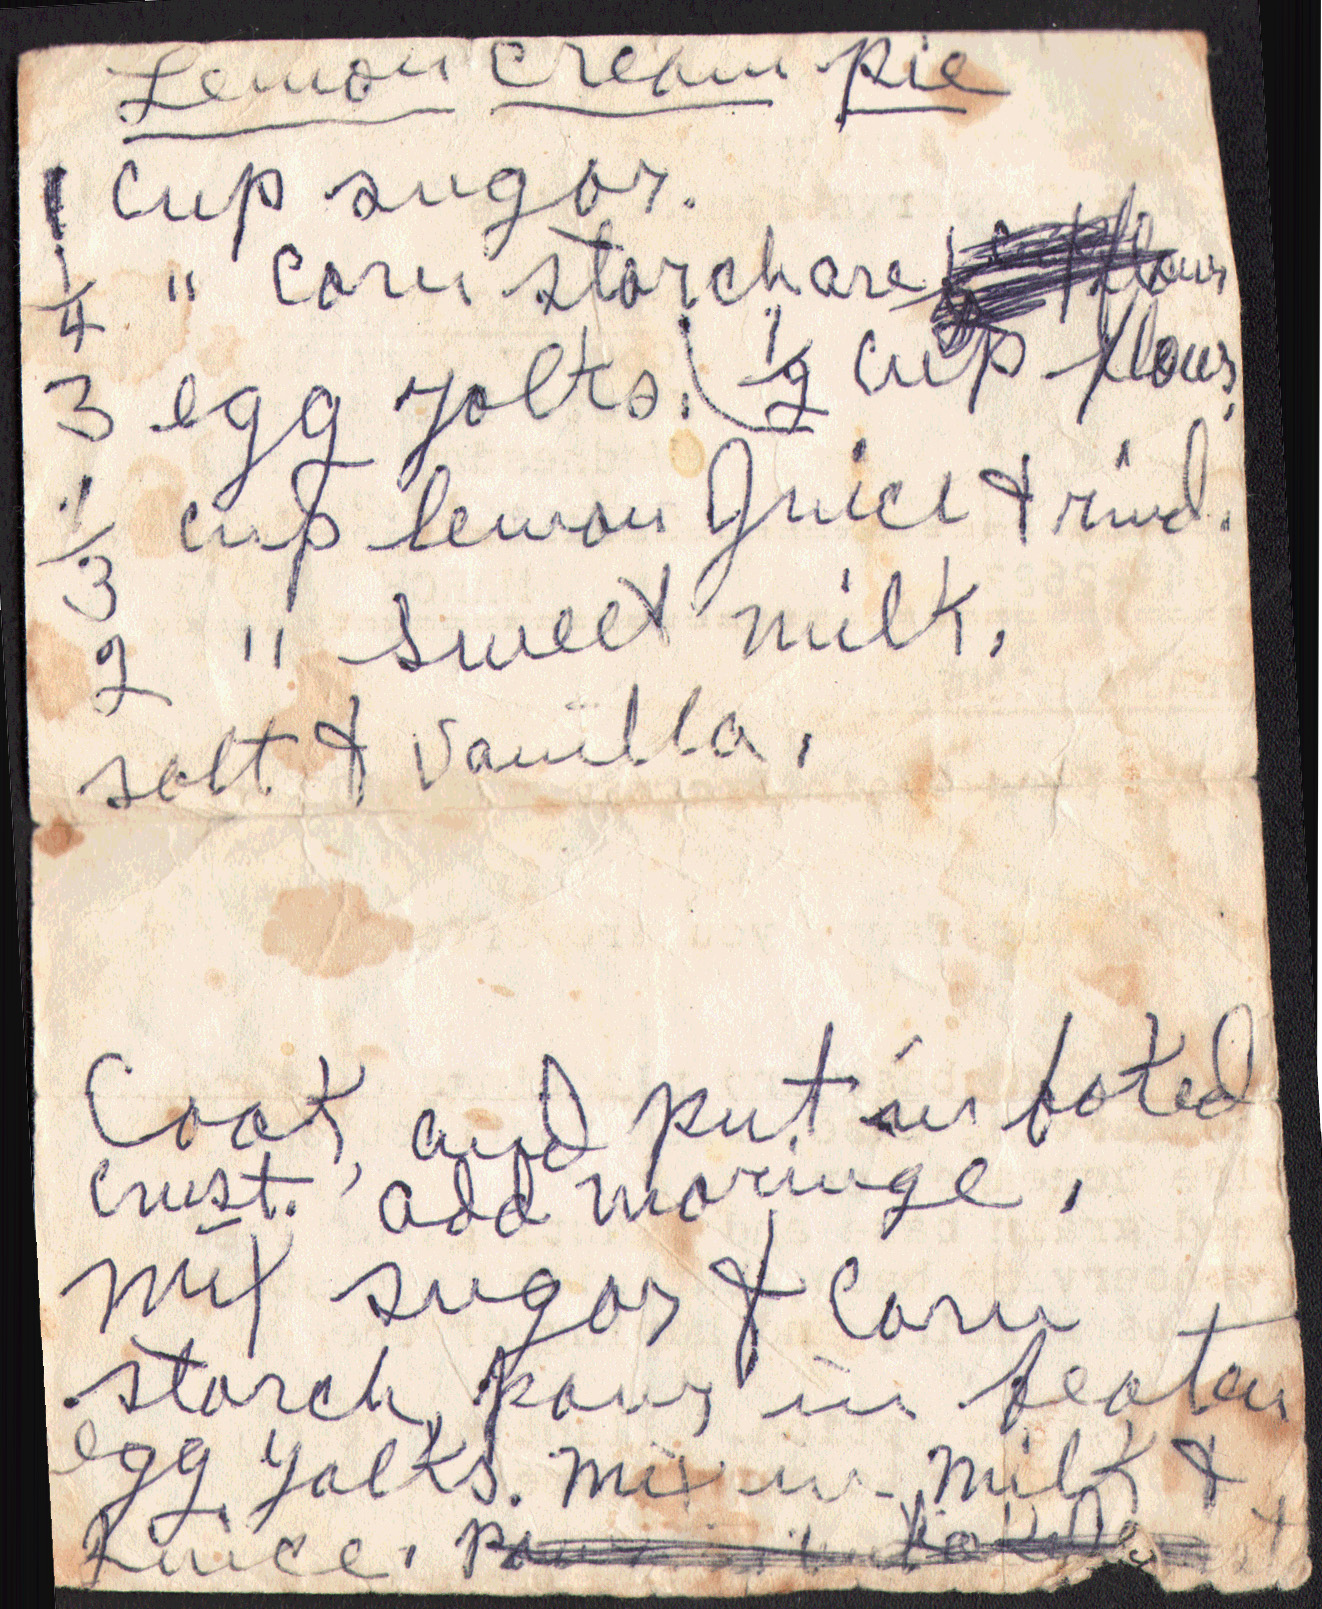 Lemon Cream Pie
1 cup sugar.
1/4 " Corn starch are flour
3 egg yolks. (1/2 cup flour.
1/3 cup lemon Juice & rind.
2 " sweet milk.
salt & Vanilla.
Cook, and put in baked
crust. add maringe.
mix sugar & Corn
starch, pour in beaten
egg yolks. mix in milk &
Juice.